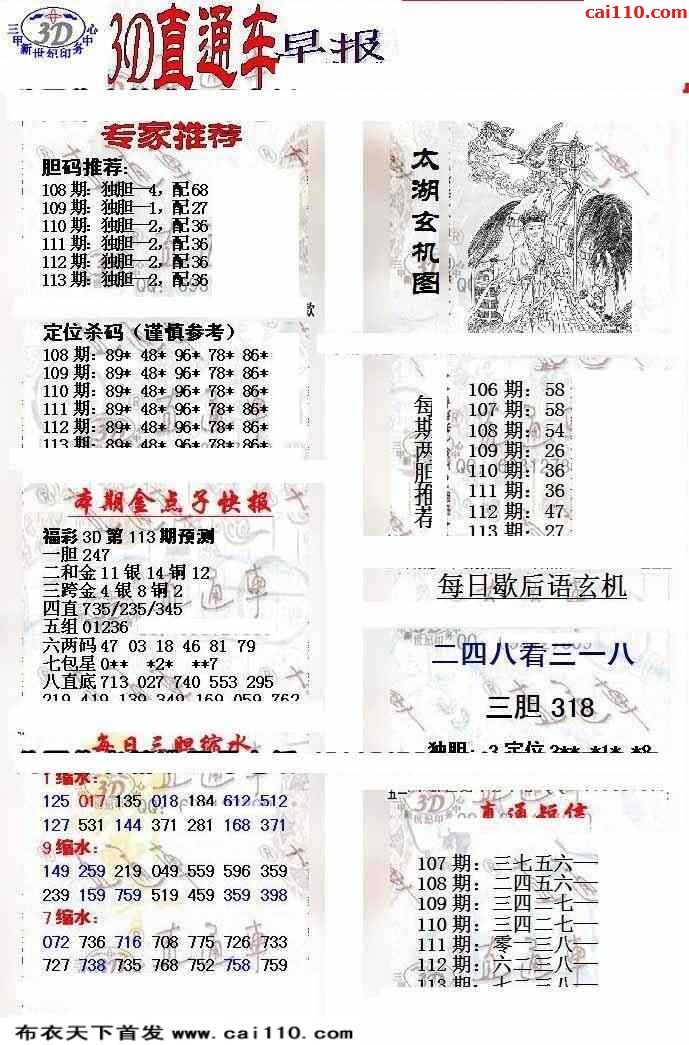 cai110.com
三甲 3D 中心
新世纪印务
3D直通车早报
专家推荐
胆码推荐:
108期: 独胆—4, 配68
109期: 独胆—1, 配27
110期: 独胆—2, 配36
111期: 独胆—2, 配36
112期: 独胆—2, 配36
113期: 独胆—2, 配36
定位杀码（谨慎参考）
108期: 89* 48* 96* 78* 86*
109期: 89* 48* 96* 78* 86*
110期: 89* 48* 96* 78* 86*
111期: 89* 48* 96* 78* 86*
112期: 89* 48* 96* 78* 86*
113期: 89* 48* 96* 78* 86*
本期金点子快报
福彩3D第113期预测
一胆247
二和金11银14铜12
三跨金4银8铜2
四直735/235/345
五组01236
六两码47 03 18 46 81 79
七包星0** *2* **7
八直底713 027 740 553 295
219 419 139 349 169 059 762
每日三胆缩水
1缩水:
125 017 135 018 184 612 512
127 531 144 371 281 168 371
9缩水:
149 259 219 049 559 596 359
239 159 759 519 459 359 398
7缩水:
072 736 716 708 775 726 733
727 738 735 768 752 758 759
太湖玄机图
每期两胆推荐
106期: 58
107期: 58
108期: 54
109期: 26
110期: 36
111期: 36
112期: 47
113期: 27
每日歇后语玄机
二四八看三一八
三胆 318
独胆: 3 定位 3** *1* *8
直通短信
107期: 三七五六一
108期: 二四五六一
109期: 三四二七一
110期: 三四二七一
111期: 零一三八一
112期: 六二三八一
113期: 七二三八一
布衣天下首发 www.cai110.com